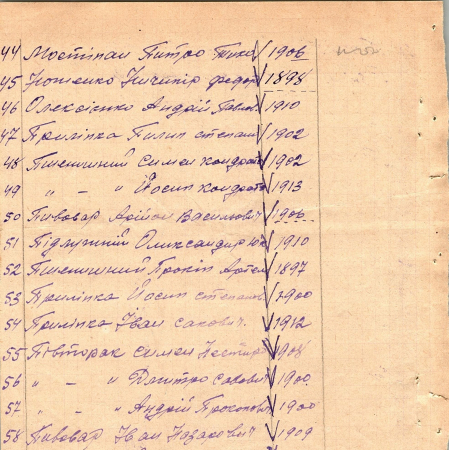 44 Мостіпан Питро Тихо 1906
45 Ноженко Ничипір федор 1898
46 Олексієнко Андрій Павл. 1910
47 Приліпка Пилип степан 1902
48 Пшеничний Симен кондрат 1902
49 " – " Йосип кондрат 1913
50 Пивовар Архип Василович 1906
51 Підлужний Олександир 1910
52 Пшеничний Прокіп Артем 1897
53 Приліпка Йосип степанов 1900
54 Приліпка Іван савович. 1912
55 Півторак симен Нестиро 1908
56 " – " Дмитро савович 1900
57 " – " Андрій Прокопович 1900
58 Пивовар Іван Назарович 1909